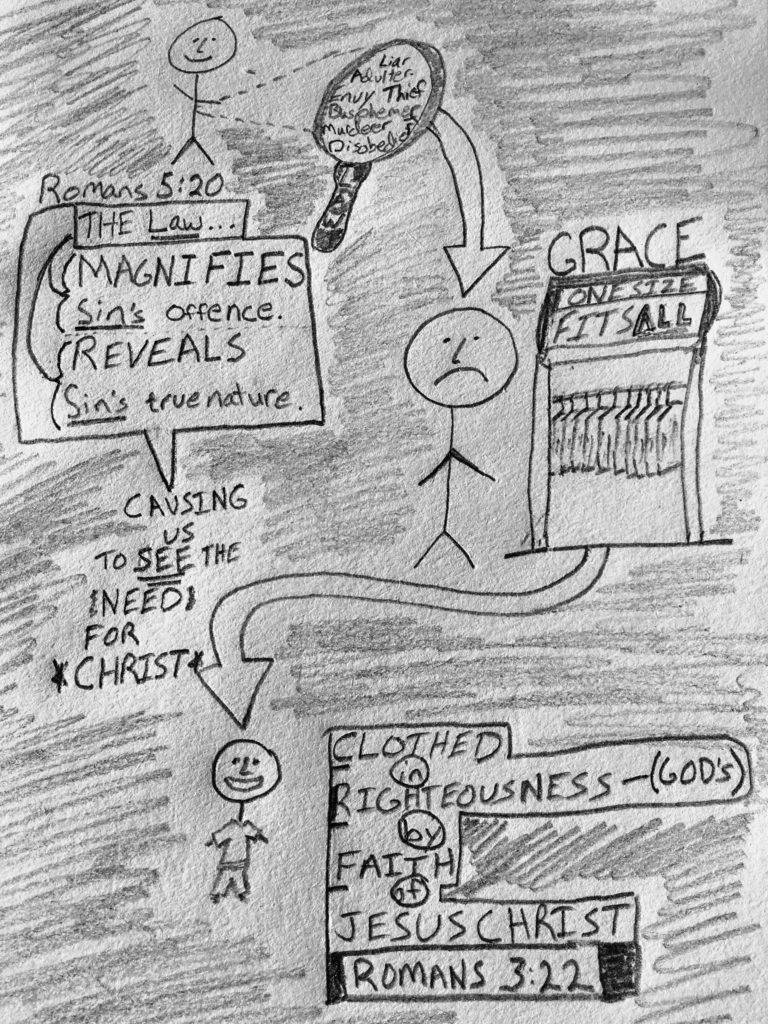 Liar
Adulter
Envy Thief
Blasphemer
Murdeer
Disobedien
LAW
Romans 5:20
THE Law...
MAGNIFIES
Sin's offence.
REVEALS
Sin's true nature.
CAUSING
US
TO SEE THE
NEED
FOR
*CHRIST*
GRACE
ONE SIZE
FITS ALL
CLOTHED
in
RIGHTEOUSNESS-(GOD'S)
by
FAITH
of
JESUS CHRIST
ROMANS 3:22